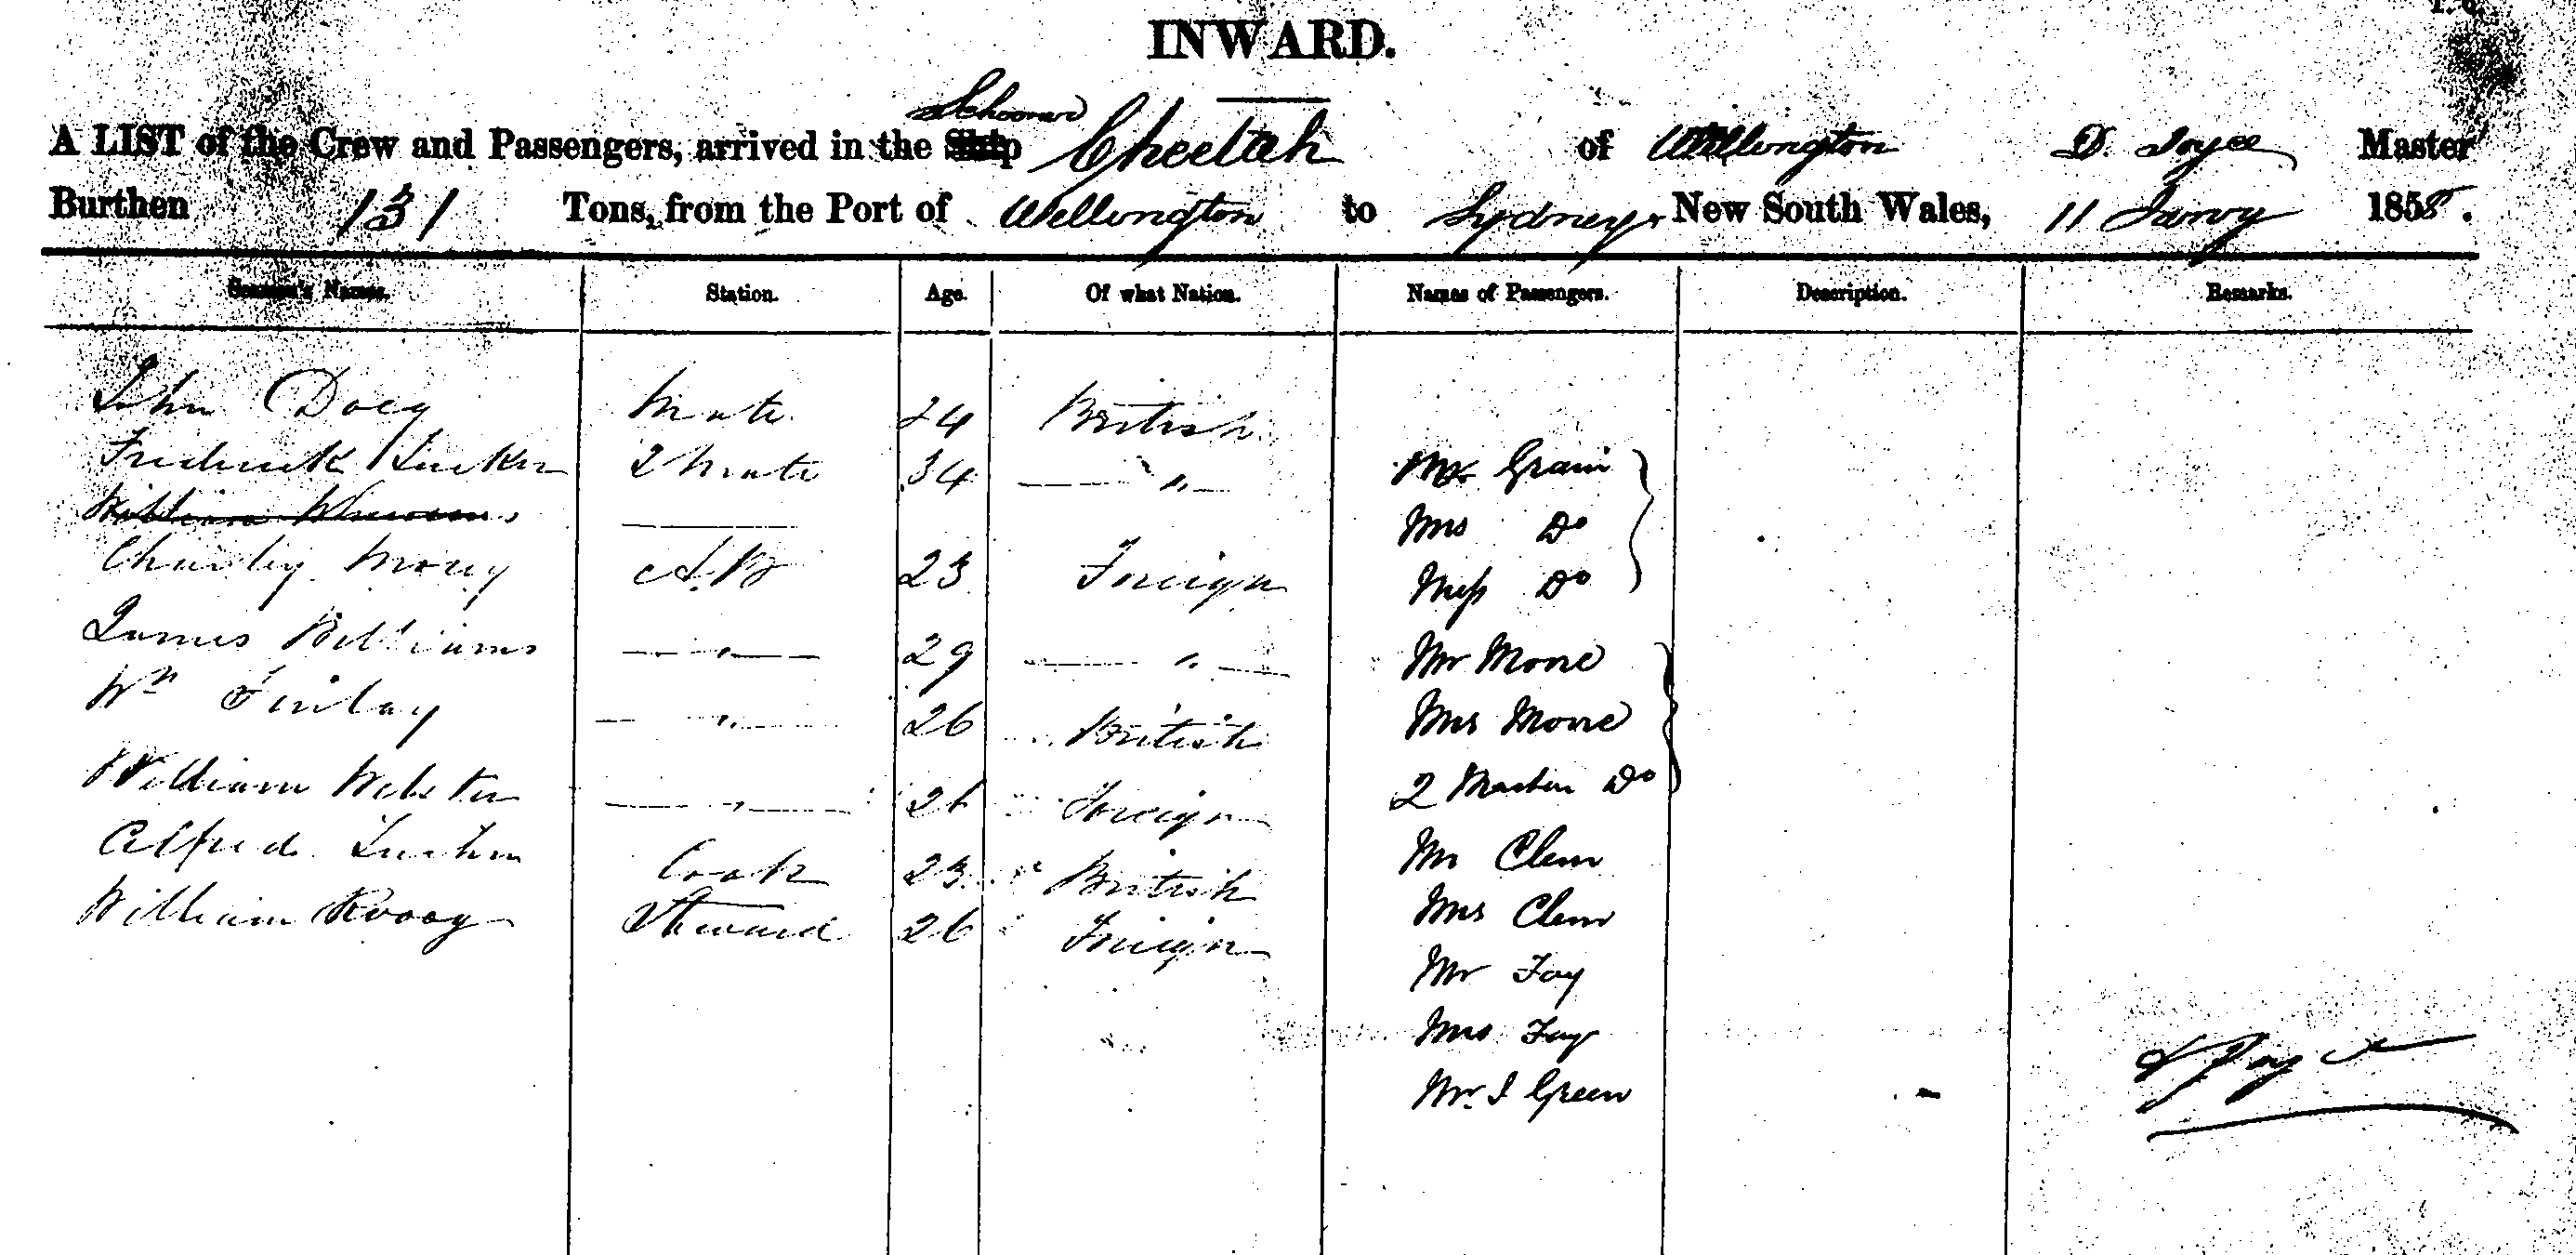 INWARD.
Schooner
A LIST of the Crew and Passengers, arrived in the Ship Cheetah of Wellington D. Joyce Master
Burthen 131 Tons, from the Port of Wellington to Sydney, New South Wales, 11 Jany 1858.
Seaman's Names. Station. Age. Of what Nation. Names of Passengers. Description. Remarks.
John Mate 24 British
Frederick 2 Mate 34 — " — Mr Grain
William Mrs Do
Charley A.B 23 Foreign Miss Do
James Williams — " — 29 — " — Mr Morre
Wm Finlay — " — 26 British Mrs Morre
William Webster — " — 26 Foreign 2 Master Do
Alfred Cook 23 British Mr Clem
William Steward 26 Foreign Mrs Clem
Mr Foy
Mrs Foy
Mr. J Green
D Joyce